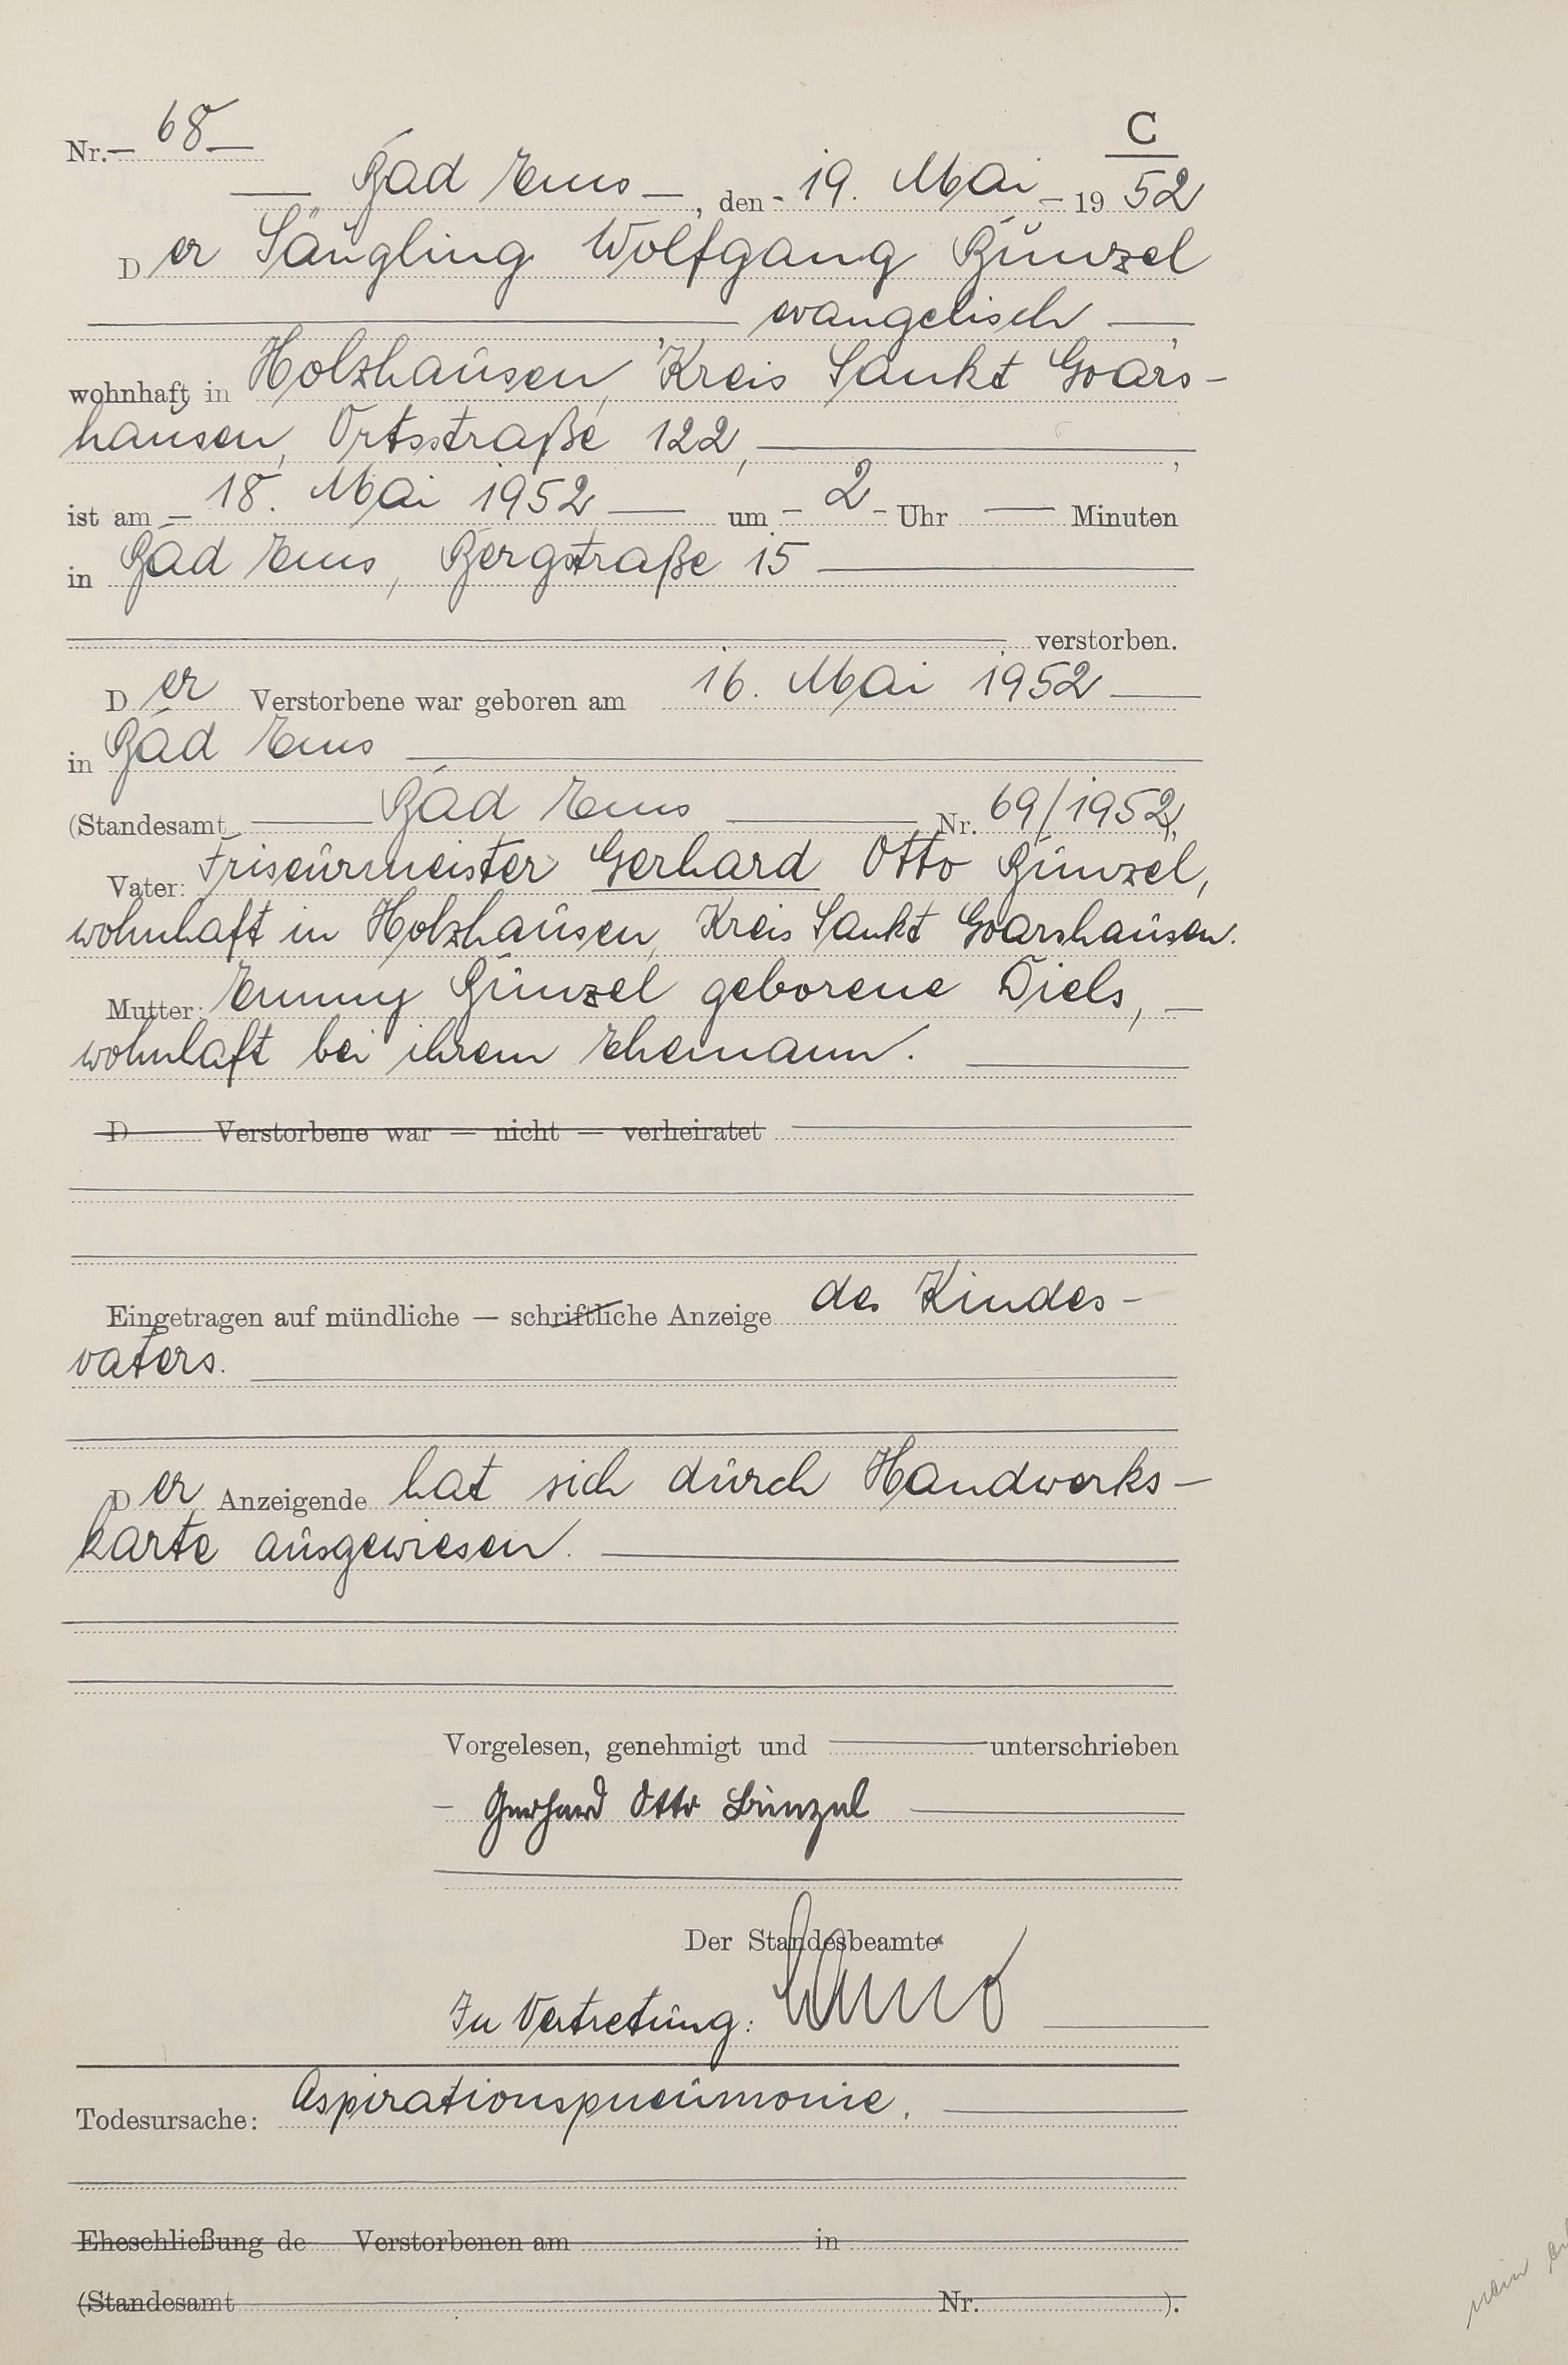 C
Nr. 68
Bad Ems, den 19. Mai 1952
Der Säugling Wolfgang Bünzel
evangelisch,
wohnhaft in Holzhausen, Kreis Sankt Goars-
hausen, Ortsstraße 122,
ist am 18. Mai 1952 um 2 Uhr — Minuten
in Bad Ems, Bergstraße 15
verstorben.
Der Verstorbene war geboren am 16. Mai 1952
in Bad Ems
(Standesamt Bad Ems Nr. 69/1952)
Vater: Friseurmeister Gerhard Otto Bünzel,
wohnhaft in Holzhausen, Kreis Sankt Goarshausen.
Mutter: Emmy Bünzel geborene Diels,
wohnhaft bei ihrem Ehemann.
D Verstorbene war — nicht — verheiratet
Eingetragen auf mündliche — schriftliche Anzeige des Kindes-
vaters.
Der Anzeigende hat sich durch Handwerks-
karte ausgewiesen.
Vorgelesen, genehmigt und unterschrieben
Gerhard Otto Bünzel
Der Standesbeamte
In Vertretung:
Todesursache: Aspirationspneumonie.
Eheschließung de Verstorbenen am in
(Standesamt Nr. ).